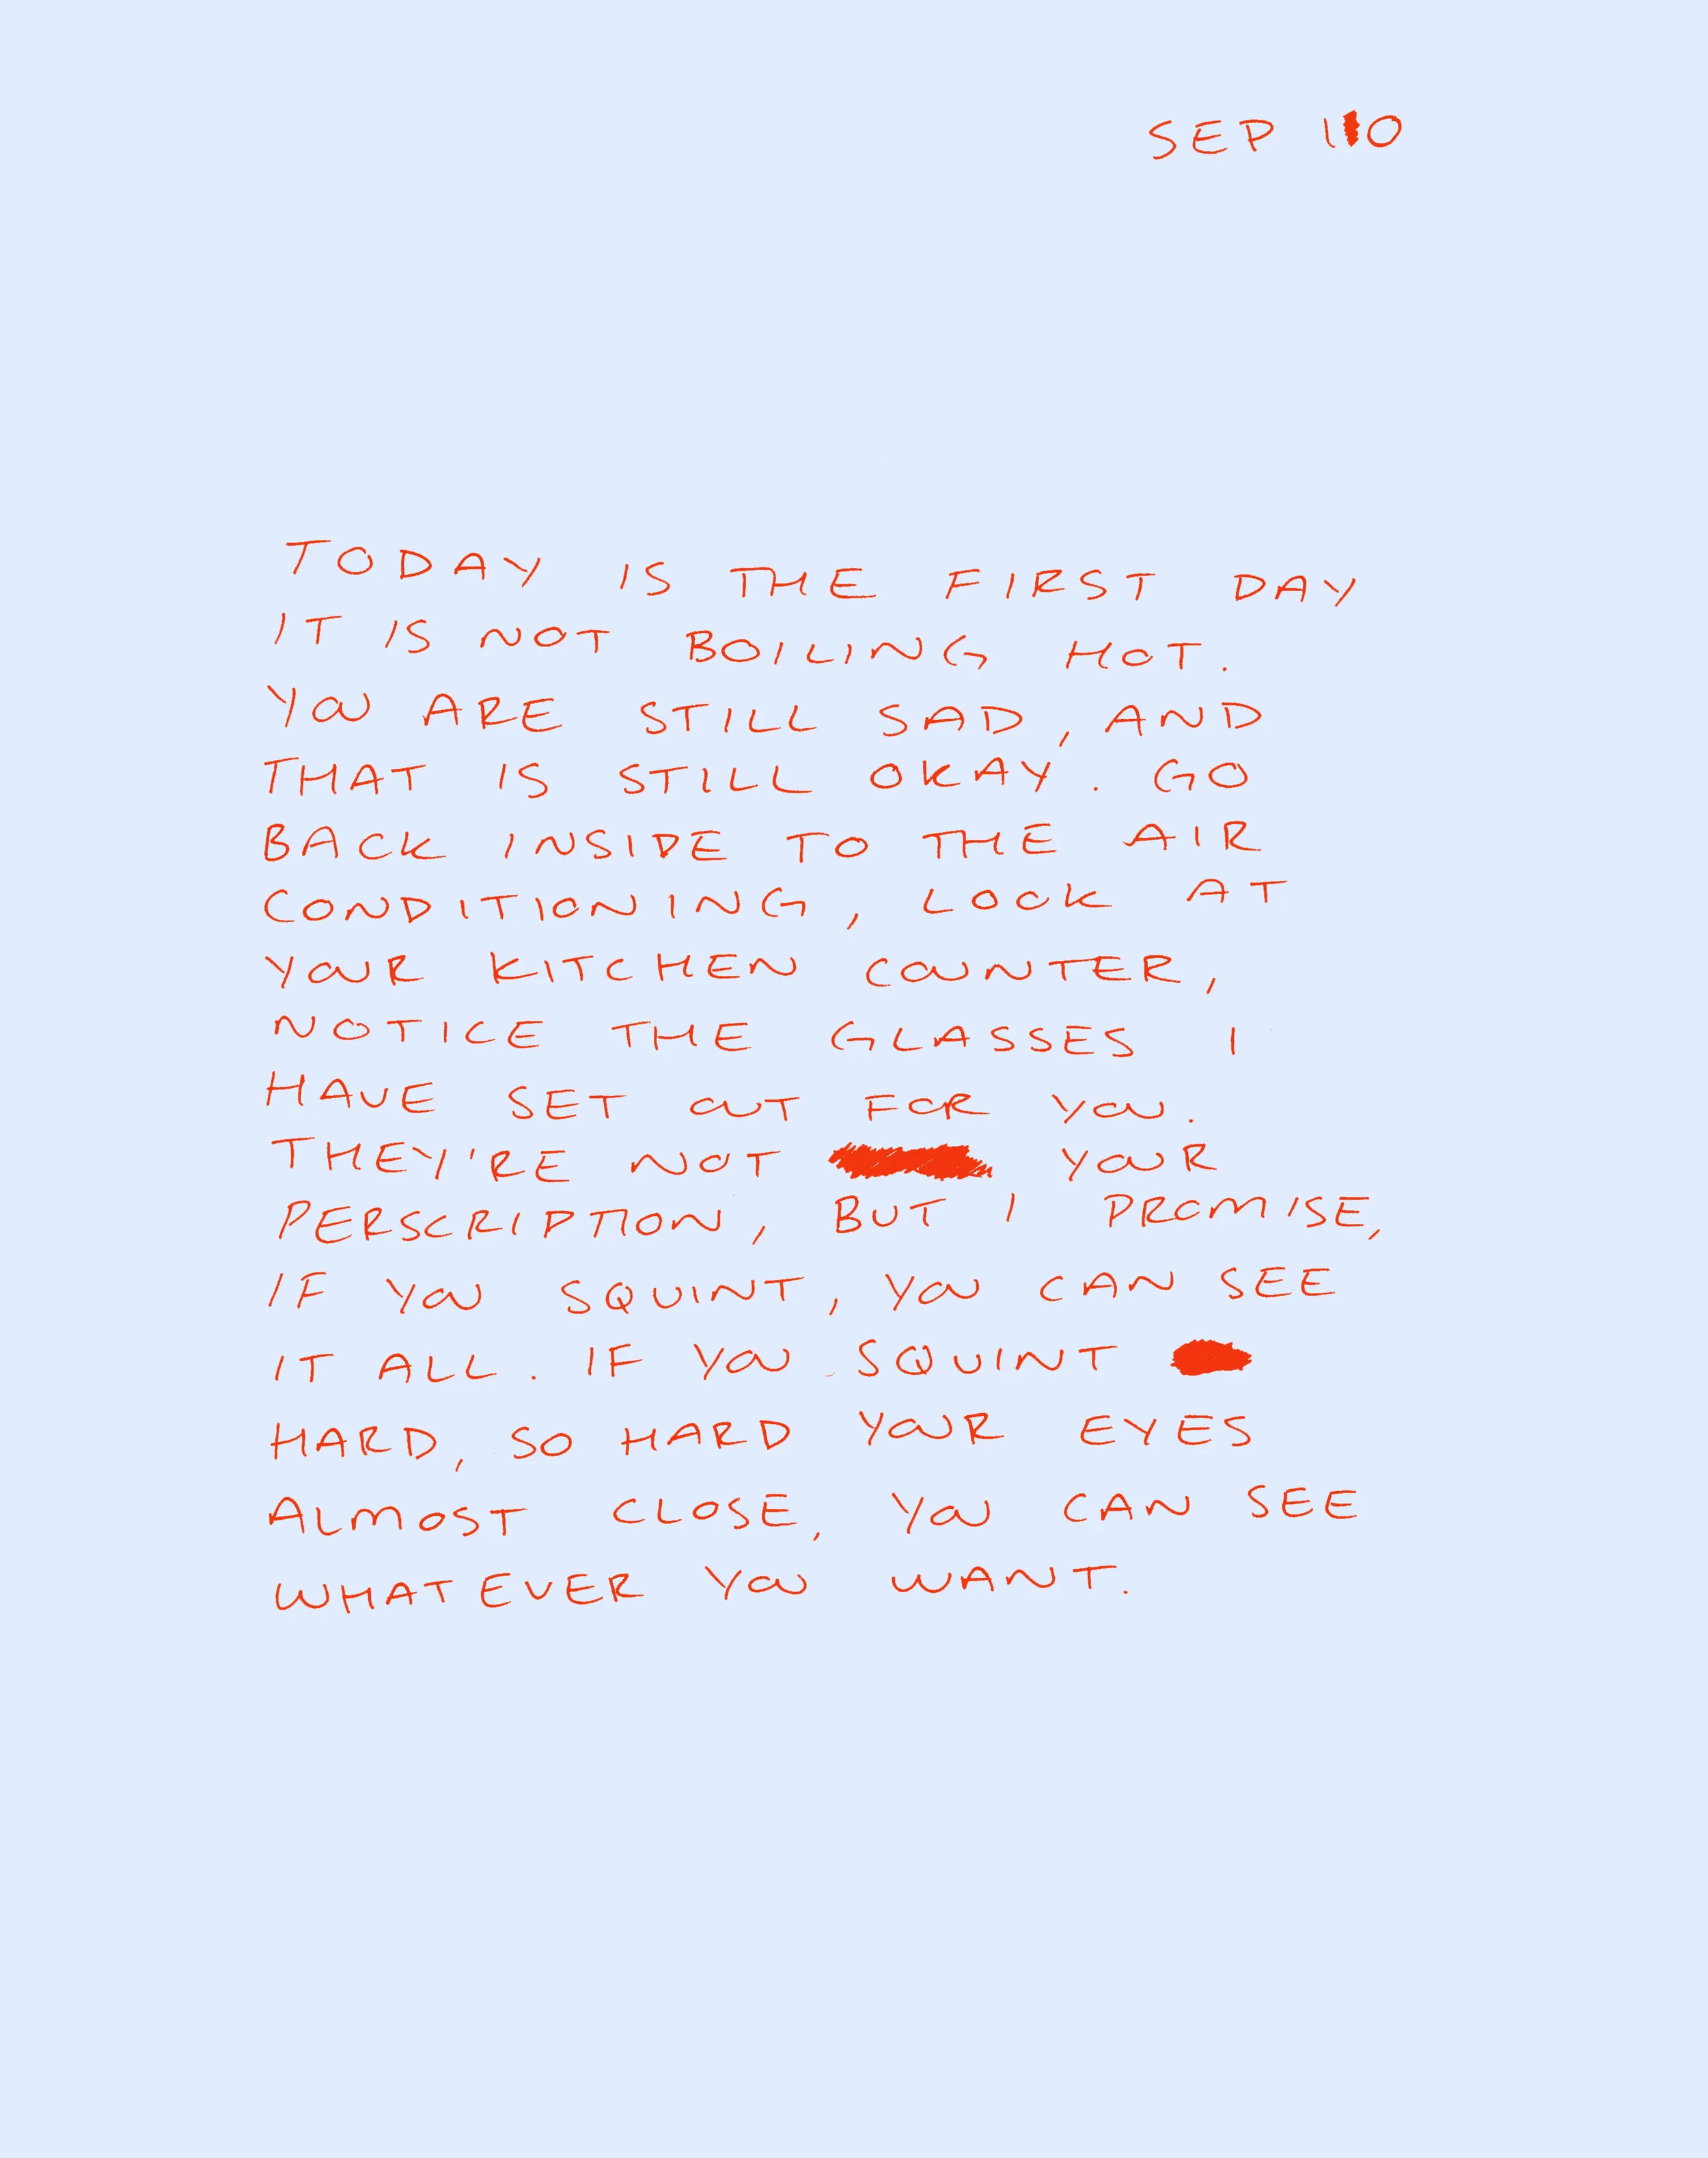 SEP 10
TODAY IS THE FIRST DAY
IT IS NOT BOILING HOT.
YOU ARE STILL SAD, AND
THAT IS STILL OKAY. GO
BACK INSIDE TO THE AIR
CONDITIONING, LOOK AT
YOUR KITCHEN COUNTER,
NOTICE THE GLASSES I
HAVE SET OUT FOR YOU.
THEY'RE NOT YOUR
PERSCRIPTION, BUT I PROMISE,
IF YOU SQUINT, YOU CAN SEE
IT ALL. IF YOU SQUINT
HARD, SO HARD YOUR EYES
ALMOST CLOSE, YOU CAN SEE
WHATEVER YOU WANT.